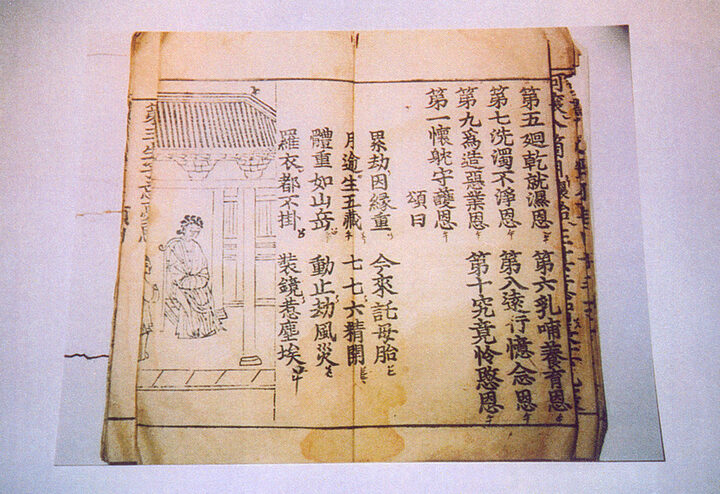 第五廻乾就濕恩 第六乳哺養育恩
第七洗濁不淨恩 第八遠行憶念恩
第九爲造惡業恩 第十究竟怜愍恩
第一懷躭守護恩
頌曰
累劫因緣重 今來託母胎
月逾生五藏 七七六精開
體重如山岳 動止劫風災
羅衣都不掛 裝鏡惹塵埃
第三生子忘憂恩